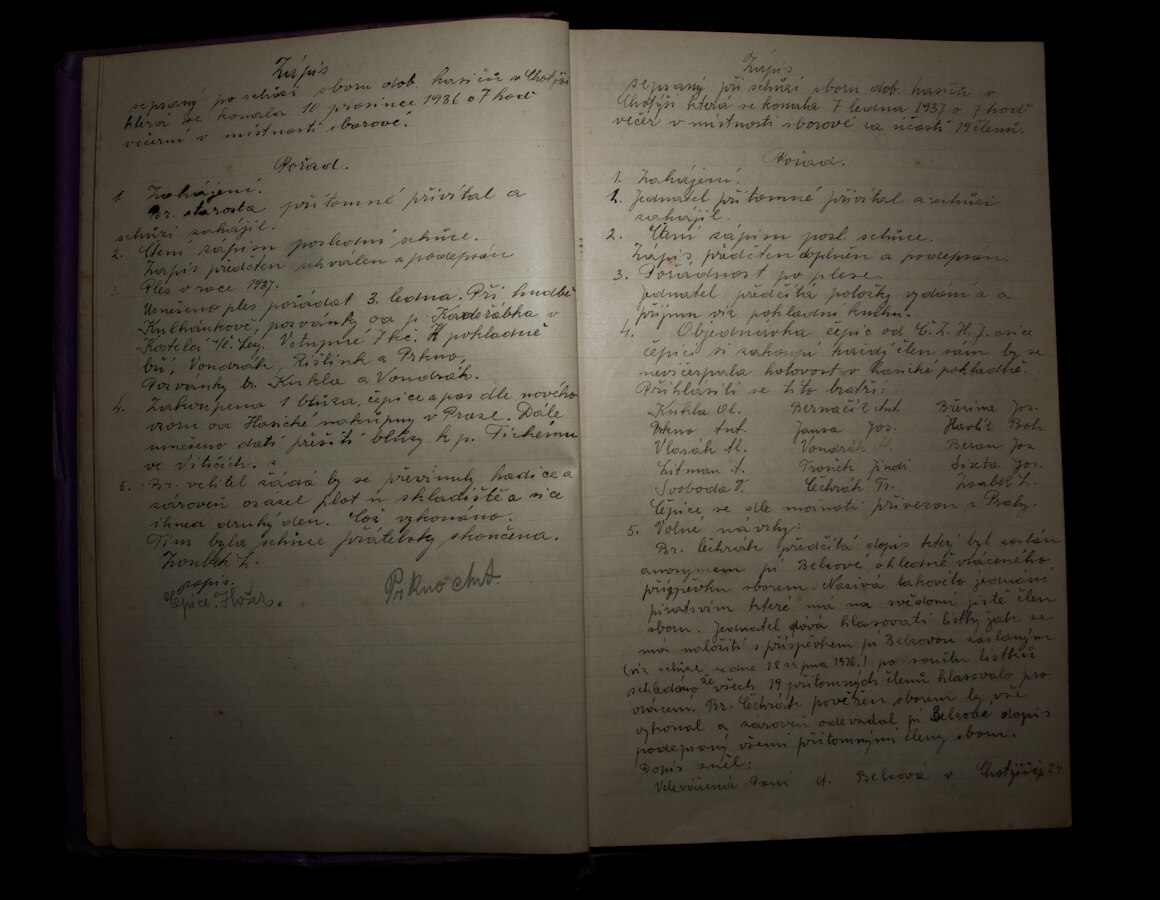 Zápis
sepsaný po schůzi sboru dob. hasičů v Chotýši
která se konala 10 prosince 1936 o 7 hod
večerní v místnosti sborové.
Pořad.
1. Zahájení.
Br. starosta přítomné přivítal a
schůzi zahájil.
2. Čtení zápisu poslední schůze.
Zápis předčten schválen a podepsán
3. Ples v roce 1937.
Usnešeno ples pořádat 3. ledna. Při hudbě
Kulhánkově, pozvánky od p. Kadeřábka v
Kostelci n/Č. Lesy. Vstupné 7 kč. K pokladně
bří, Vondrák, Rišlink a Prkno,
Pozvánky br. Kukla a Vondrák.
4. Zakoupena 1 blůza, čepice a pas dle nového
vzoru od Hasičské nákupny v Praze. Dále
usnešeno dáti přešíti blůzy k p. Tichému
ve Viticích.
5. Br. velitel žádá by se převinuly hadice a
zároveň osázel plot u skladiště a sice
ihned druhý den. Což vykonáno.
Tím byla schůze přátelsky skončena.
Zoubek L.
zapis.
Čepice. Hošek.
Prkno Ant.
Zápis
sepsaný při schůzi sboru dob. hasičů v
Chotýši která se konala 7 ledna 1937 o 7 hod
večer v místnosti sborové za účasti 19 členů.
Pořad.
1. Zahájení.
1. Jednatel přítomné přivítal a schůzi
zahájil.
2. Čtení zápisu posl. schůze.
Zápis předčten doplněn a podepsán.
3. Pořádnost po plese
Jednatel předčítá položky vydání a a
příjmu viz pokladní knihu.
4. Objednávka čepic od Č.Z.H.J. asice
čepici si zakoupí každý člen sám by se
nevičerpala hotovost v hasické pokladně.
Přihlásili se tito bratří:
Kukla Ol. Bernačik Ant. Březina Jos.
Prkno Ant. Jansa Jos. Havlík Boh
Vlasák Al. Vondrák Beran Jos.
Litman A. Trojek Jindř Sixta Jos.
Svoboda V. Čechrák Fr. Zoubek L.
Čepice se dle možnosti přivezou z Prahy.
5. Volné návrhy:
Br. Čechrák předčítá dopis který byl zaslán
anonymem pí Belzové ohledně vráceného
příspěvku sborem. Nazívá takovéto jednání
pirátsvím které má na svědomí jistě člen
sboru. Jednatel dává hlasovati lístky jak se
má naložiti s příspěvkem pí Belzovou zaslaným
(viz schůze ze dne 18 srpna 1936.) po součtu lístků
schledáno že všech 19 přítomných členů hlasovalo pro
vrácení. Br. Čechrák pověřen sborem by vše
vykonal a zároveň odevzdal pí Belzové dopis
podepsaný všemi přítomnými členy sboru.
Dopis zněl:
Velevážená Paní A. Belzová v Chotýši čp 24.